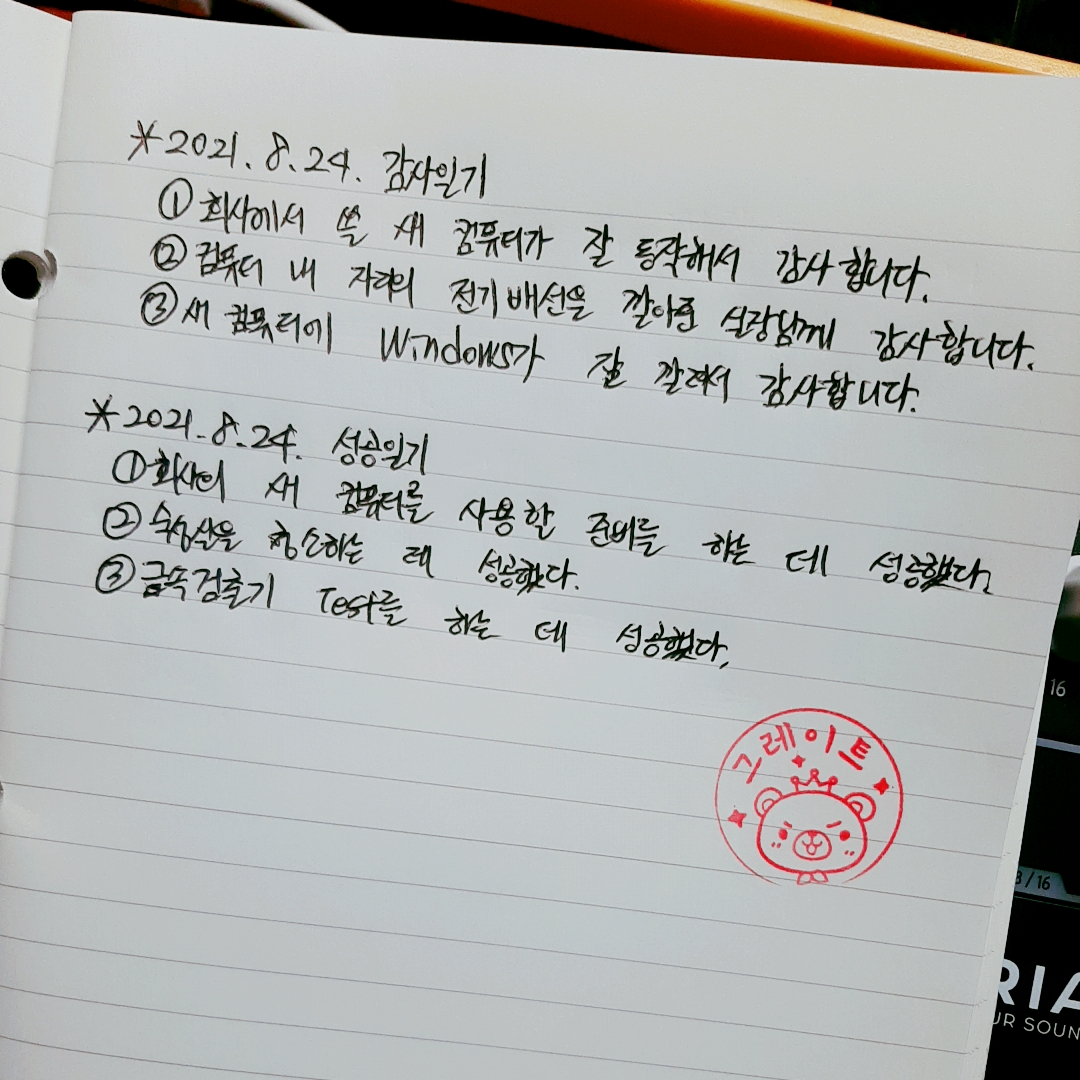 *2021. 8. 24. 감사일기
① 회사에서 쓸 새 컴퓨터가 잘 동작해서 감사합니다.
② 컴퓨터 내 자리의 전기배선을 깔아준 실장님께 감사합니다.
③ 새 컴퓨터에 Windows가 잘 깔려서 감사합니다.
*2021. 8. 24. 성공일기
① 회사의 새 컴퓨터를 사용할 준비를 하는 데 성공했다.
② 청소하는 데 성공했다.
③ 금속검출기 Test를 하는 데 성공했다.
그레이트
16
3/16
RIA
UR SOUN